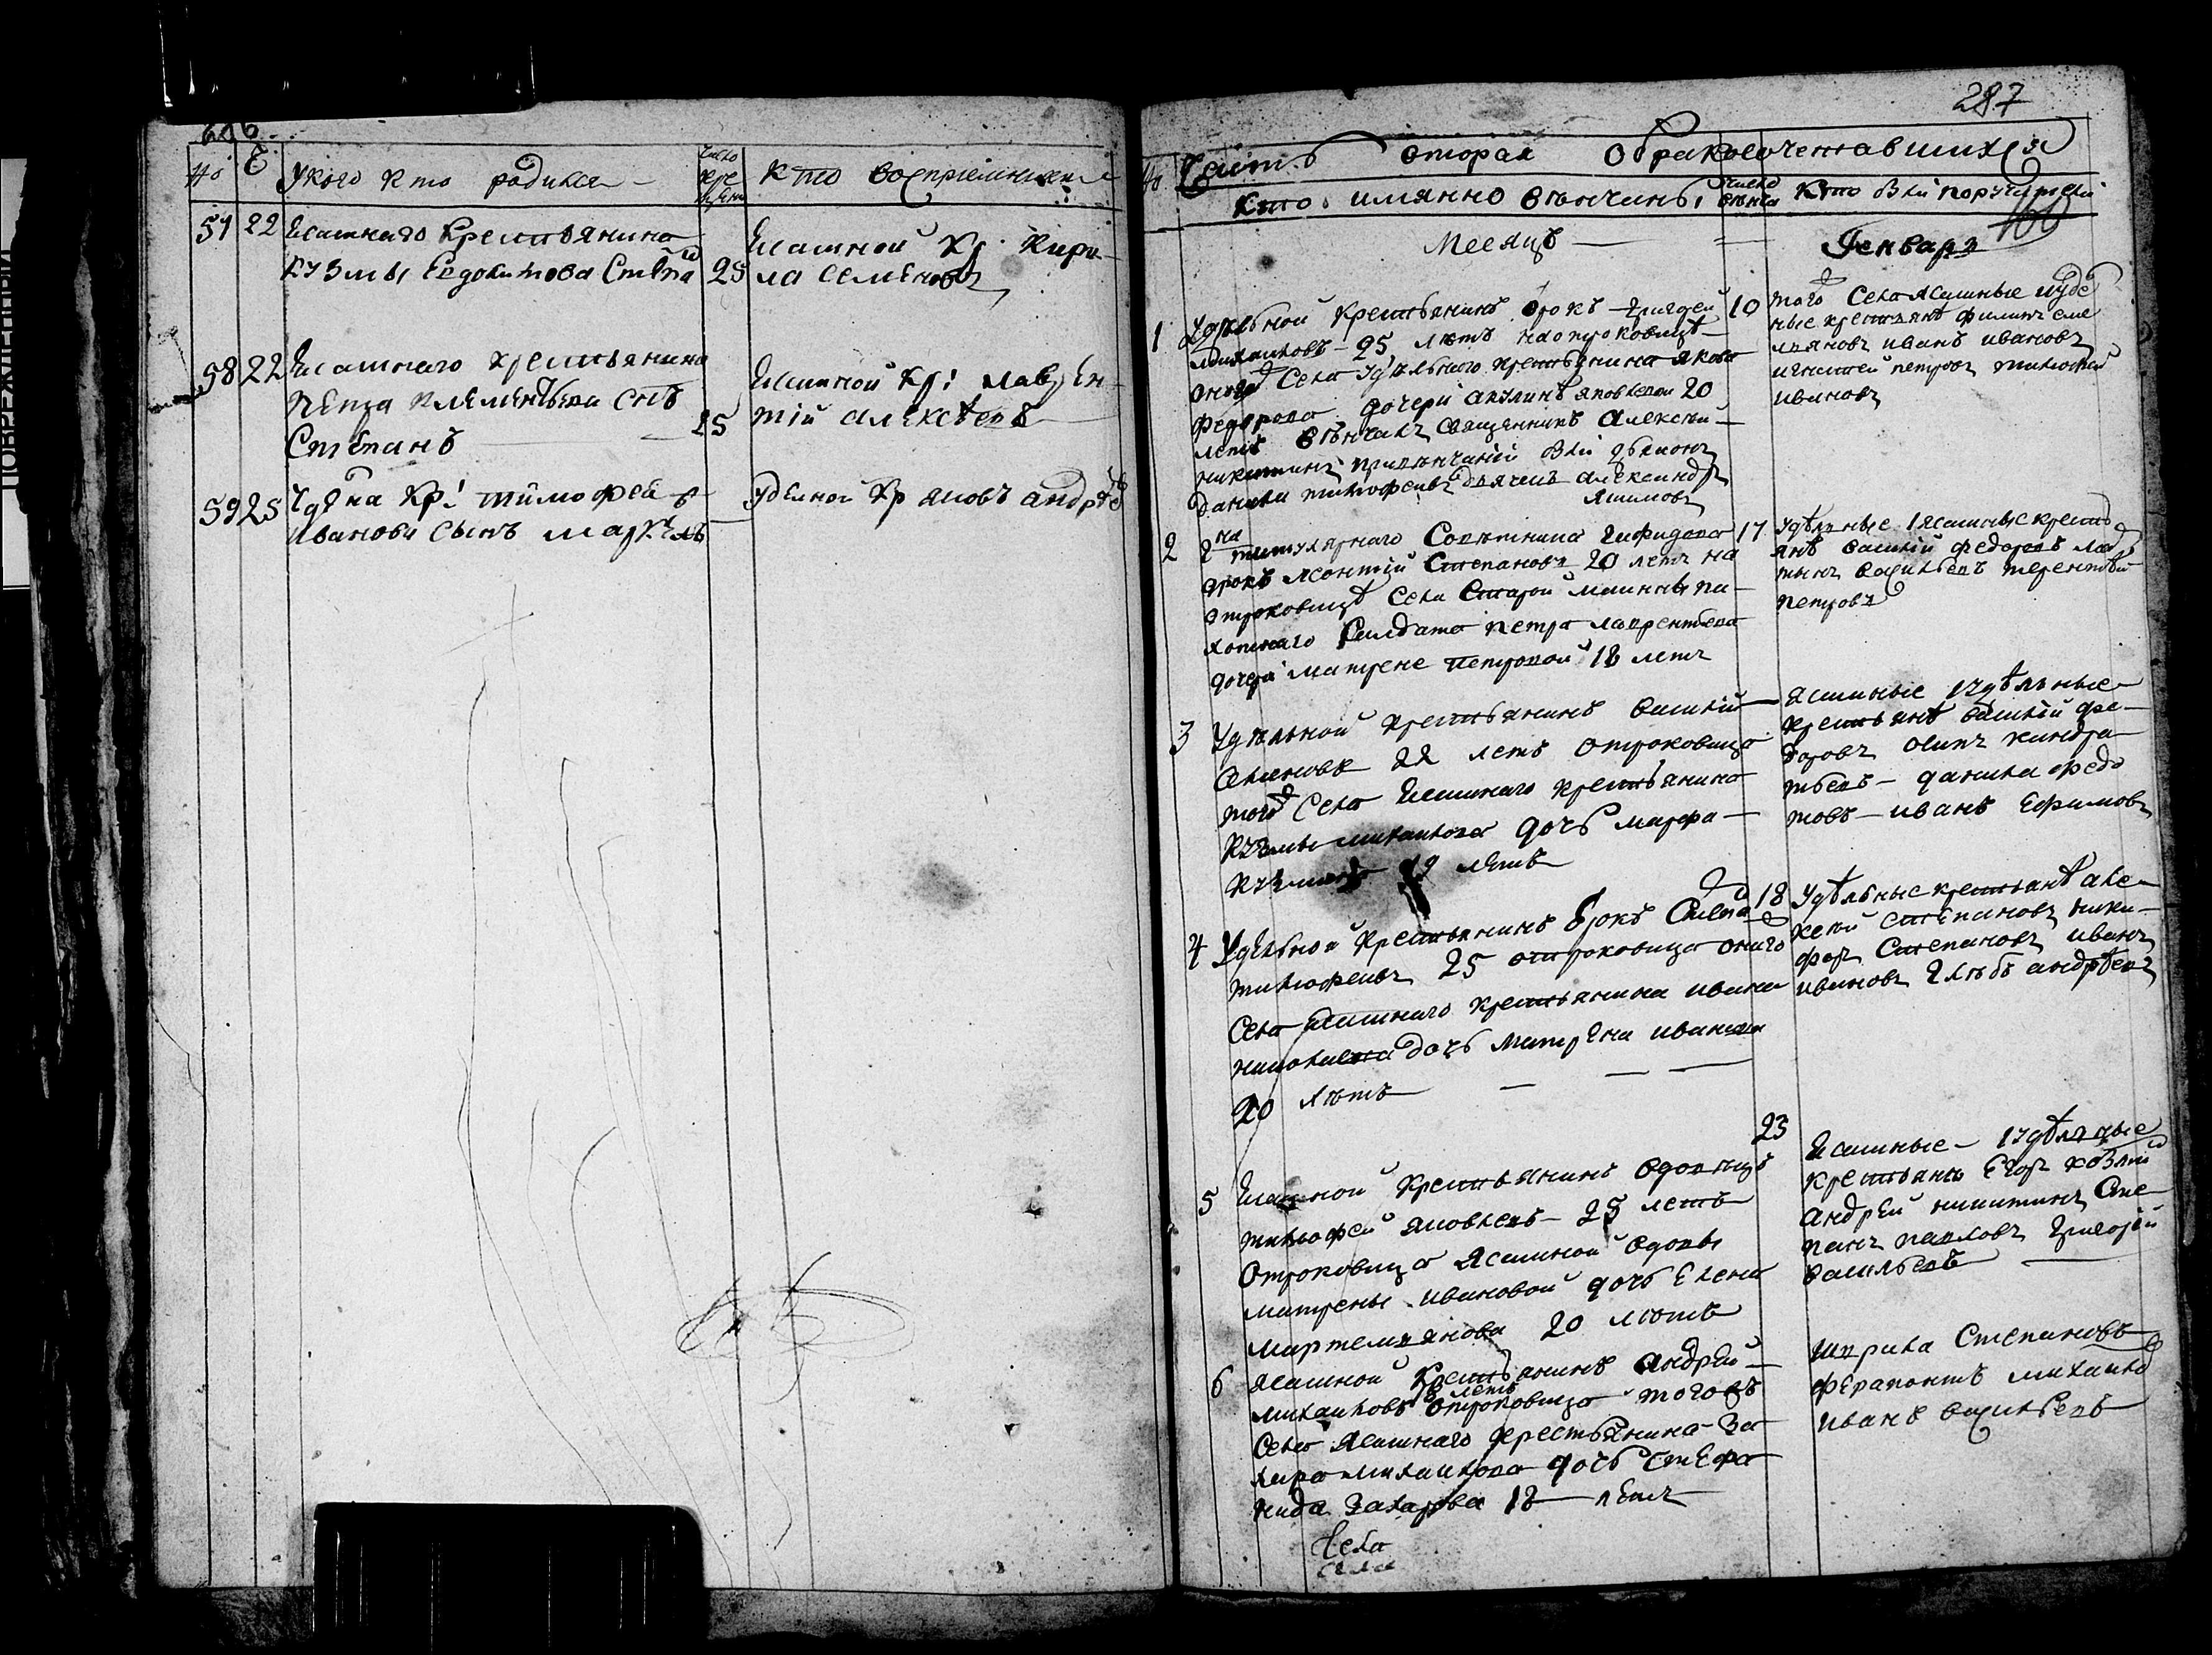 №
У кого кто родился
число кре щения
кто восприемники
57 22 Ясашнаго крестьянина
кузмы Евдокимова
25
Ясашной Кр: Кири
ла Семеновъ
58 22 Ясашнаго крестьянина
петра клементьева снъ
Степанъ
25
Ясашной Кр: лаврен
тий алексѣевъ
59 25 Кр: тимофея
Иванова сынъ
Кр яковъ андрѣе
287
№ Часть вторая О бракосочетавшихся
Кто имянно вѣнчаны
число
Кто были поручители
Месяцъ
Генварь
1 Удѣльной крестьянинъ отрокъ григорей
михаиловъ 25 лѣтъ на отроковицѣ
оного Села удѣльного крестьянина якова
федорова дочери акулинѣ яковлевой 20
летъ вѣнчалъ священникъ Алексѣй
никитинъ при вѣнчании были дьяконъ
данила тимофеивъ дьячекъ александръ
якимовъ
10
того Села ясашные и удѣ
ные крестьянѣ филипъ еме
льяновъ иванъ ивановъ
петровъ тимофей
ивановъ
2 титулярнаго Советника
отрокъ леонтий Степановъ 20 летъ на
отроковицѣ Села Старой маинны па
хотнаго Солдата петра лаврентьева
дочери матрене петровой 18 летъ
17
удѣлные и ясашные кресть
янѣ василий федоровъ
васильевъ терентей
петровъ
3 Удѣльной крестьянинъ василий
22 летъ отроковица
того Села ясашнаго крестьянина
кузмы михаилова дочь марфа
кузмина 19 летъ
ясашные и удѣльные
крестьянѣ василий фе
доровъ осипъ кандра
тьевъ данила федо
товъ иванъ Ефимовъ
4 Удѣльной крестьянинъ отрокъ
тимофеивъ 25 отроковица онаго
Села ясашнаго крестьянина ивана
николаева дочь матрена иванова
20 лѣтъ
18
Удѣльные крестьянѣ але
ксей степановъ ники
форъ Степановъ иванъ
ивановъ глѣбъ андрѣевъ
5 Ясашной крестьянинъ вдовецъ
тимофей яковлевъ 25 летъ
Отроковица ясашной вдовы
матрены ивановой дочь Елена
мартемьянова 20 лѣтъ
23
Ясашные и удѣльные
крестьяне Егор
андрей никитинъ Сте
панъ павловъ григорій
васильевъ
6 ясашной крестьянинъ андрей
михаиловъ 18 летъ отроковица тогожъ
Села ясашнаго крестьянина за
хара михаилова дочь степа
нида захарова 18 летъ
Степановъ
ферапонтъ михаило
иванъ васильевъ
Села
Села